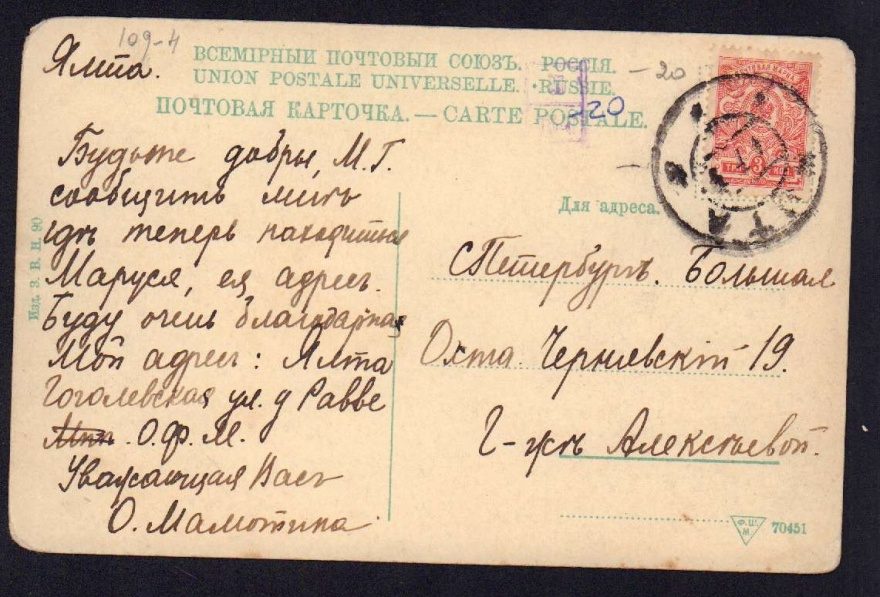 109-4
Ялта.
ВСЕМІРНЫЙ ПОЧТОВЫЙ СОЮЗЪ. РОССІЯ.
UNION POSTALE UNIVERSELLE. RUSSIE.
ПОЧТОВАЯ КАРТОЧКА. — CARTE POSTALE.
-20
-20
Будьте добры, М. Г.
сообщить мнѣ
гдѣ теперь находится
Маруся, ея адресъ.
Буду очень благодарна
Мой адресъ: Ялта
Гоголевская ул. д Равве
О. Ф. М.
Уважающая Васъ
О. Мамотина
Для адреса.
С.Петербургъ. Большая
Охта Черновскій 19.
Г-жѣ Алексѣевой.
Изд. З. В. Н. 90
Ф. Ш. М
70451